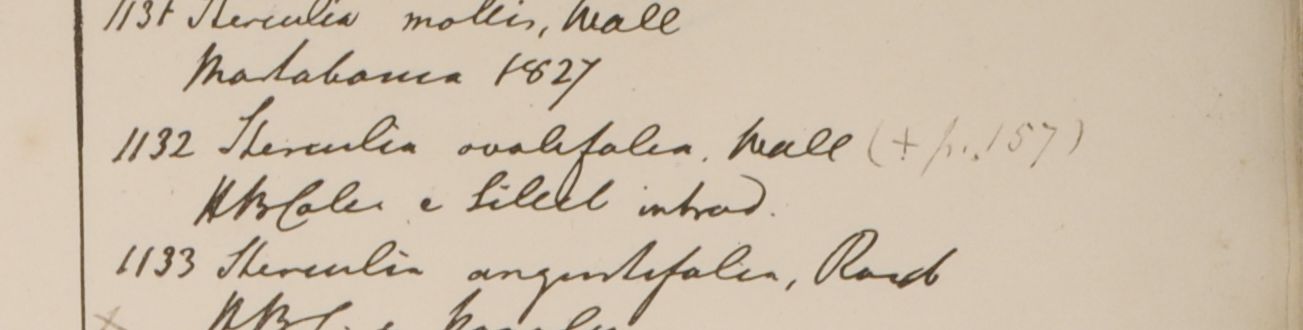 1131 Sterculia mollis, Wall
Martabania 1827
1132 Sterculia ovalifolia. Wall (+ p. 157)
HBCalc e Silhet introd.
1133 Sterculia angustifolia, Roxb
HBC. e